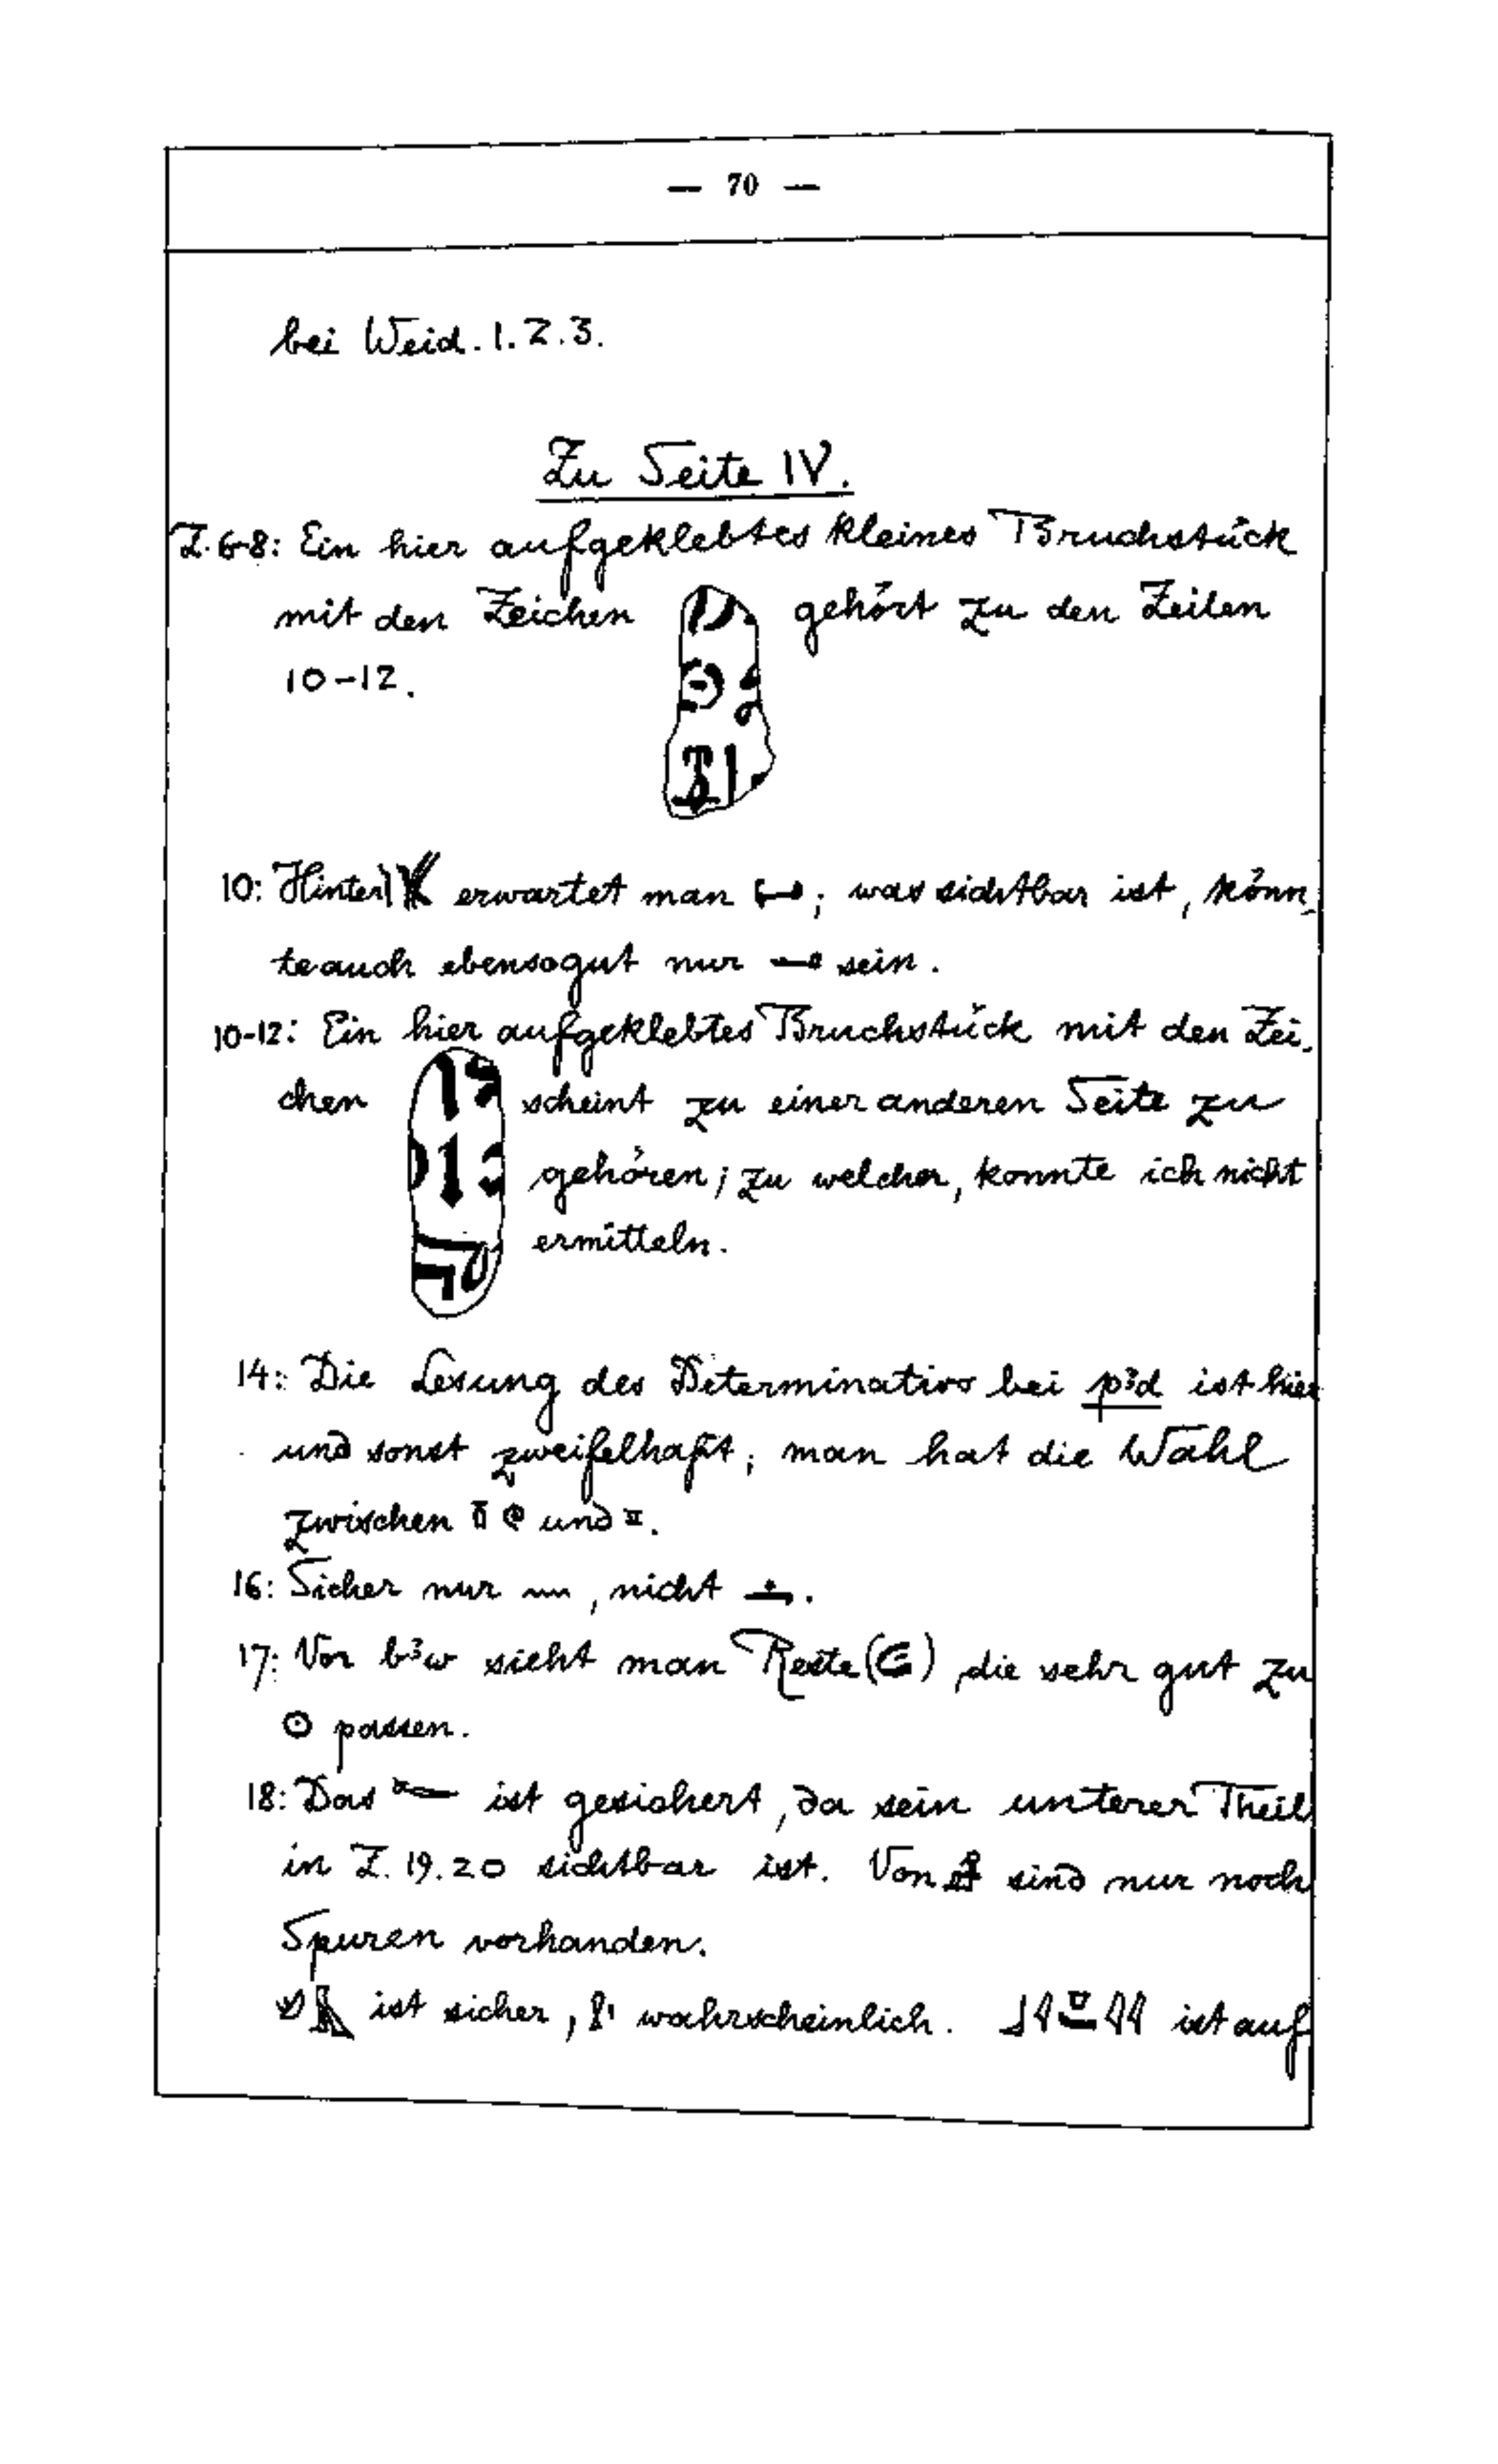 — 70 —
bei Weid. 1. 2. 3.
Zu Seite IV.
Z. 6-8: Ein hier aufgeklebtes kleines Bruchstück
mit den Zeichen gehört zu den Zeilen
10-12.
10: Hinter erwartet man ; was sichtbar ist, könn-
te auch ebensogut nur sein.
10-12: Ein hier aufgeklebtes Bruchstück mit den Zei-
chen scheint zu einer anderen Seite zu
gehören; zu welcher, konnte ich nicht
ermitteln.
14: Die Lesung des Determinativs bei pꜣd ist hier
und sonst zweifelhaft; man hat die Wahl
zwischen und .
16: Sicher nur 𓈖, nicht .
17: Vor bꜣw sieht man Reste ( ), die sehr gut zu
𓇳 passen.
18: Das ist gesichert, da sein unterer Theil
in Z. 19. 20 sichtbar ist. Von sind nur noch
Spuren vorhanden.
ist sicher, wahrscheinlich. ist auf